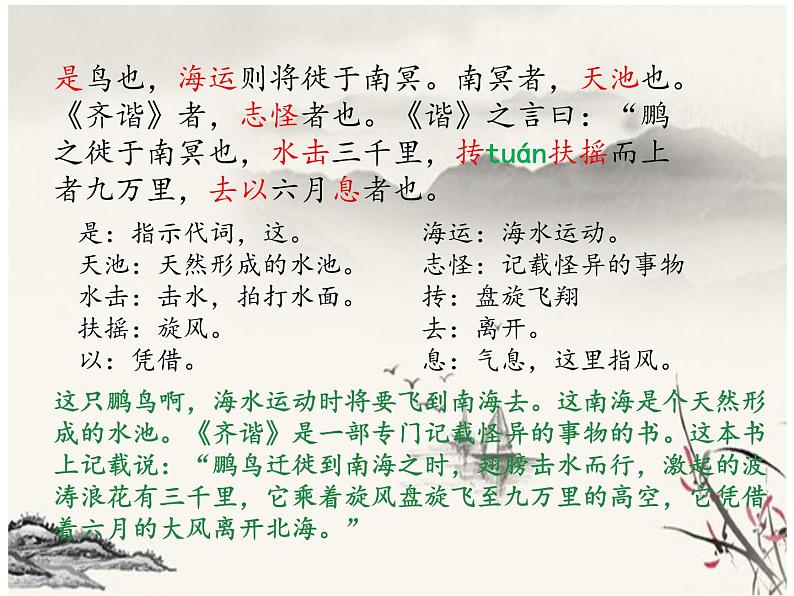 是鸟也，海运则将徙于南冥。南冥者，天池也。
《齐谐》者，志怪者也。《谐》之言曰：“鹏
之徙于南冥也，水击三千里，抟tuán扶摇而上
者九万里，去以六月息者也。
是：指示代词，这。 海运：海水运动。
天池：天然形成的水池。 志怪：记载怪异的事物
水击：击水，拍打水面。 抟：盘旋飞翔
扶摇：旋风。 去：离开。
以：凭借。 息：气息，这里指风。
这只鹏鸟啊，海水运动时将要飞到南海去。这南海是个天然形
成的水池。《齐谐》是一部专门记载怪异的事物的书。这本书
上记载说：“鹏鸟迁徙到南海之时，翅膀击水而行，激起的波
涛浪花有三千里，它乘着旋风盘旋飞至九万里的高空，它凭借
着六月的大风离开北海。”